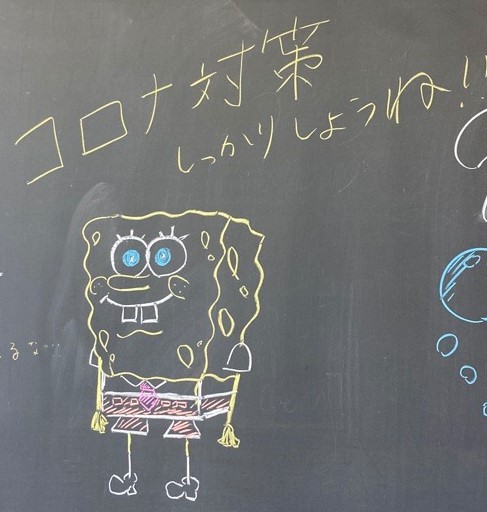 コロナ対策
しっかりしようね!!
るな…